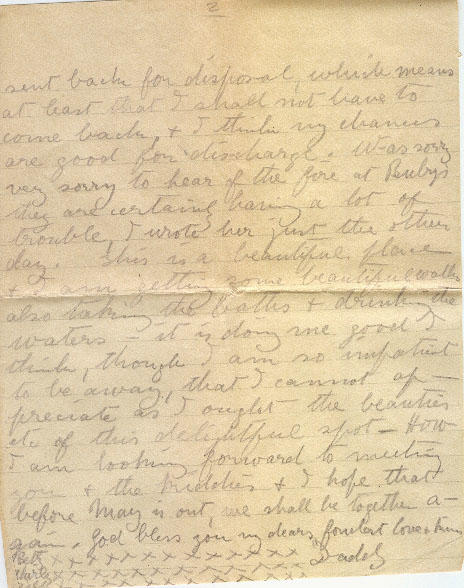 2
sent back for disposal, which means
at least that I shall not have to
come back, & I think my chances
are good for discharge. Was sorry
very sorry to hear of the fire at Ruby's
they are certainly having a lot of
trouble, I wrote her just the other
day. This is a beautiful place
& I am getting some beautiful walks
also taking the baths & drinking the
waters - it is doing me good I
think, though I am so impatient
to be away, that I cannot ap-
preciate as I ought the beauties
etc of this delightful spot - How
I am looking forward to meeting
you & the kiddies & I hope that
before May is out, we shall be together a-
gain. God bless you my dears, fondest love &
Beth x x x x x x x x x x x x Daddy
x x x x x x x x x x x x